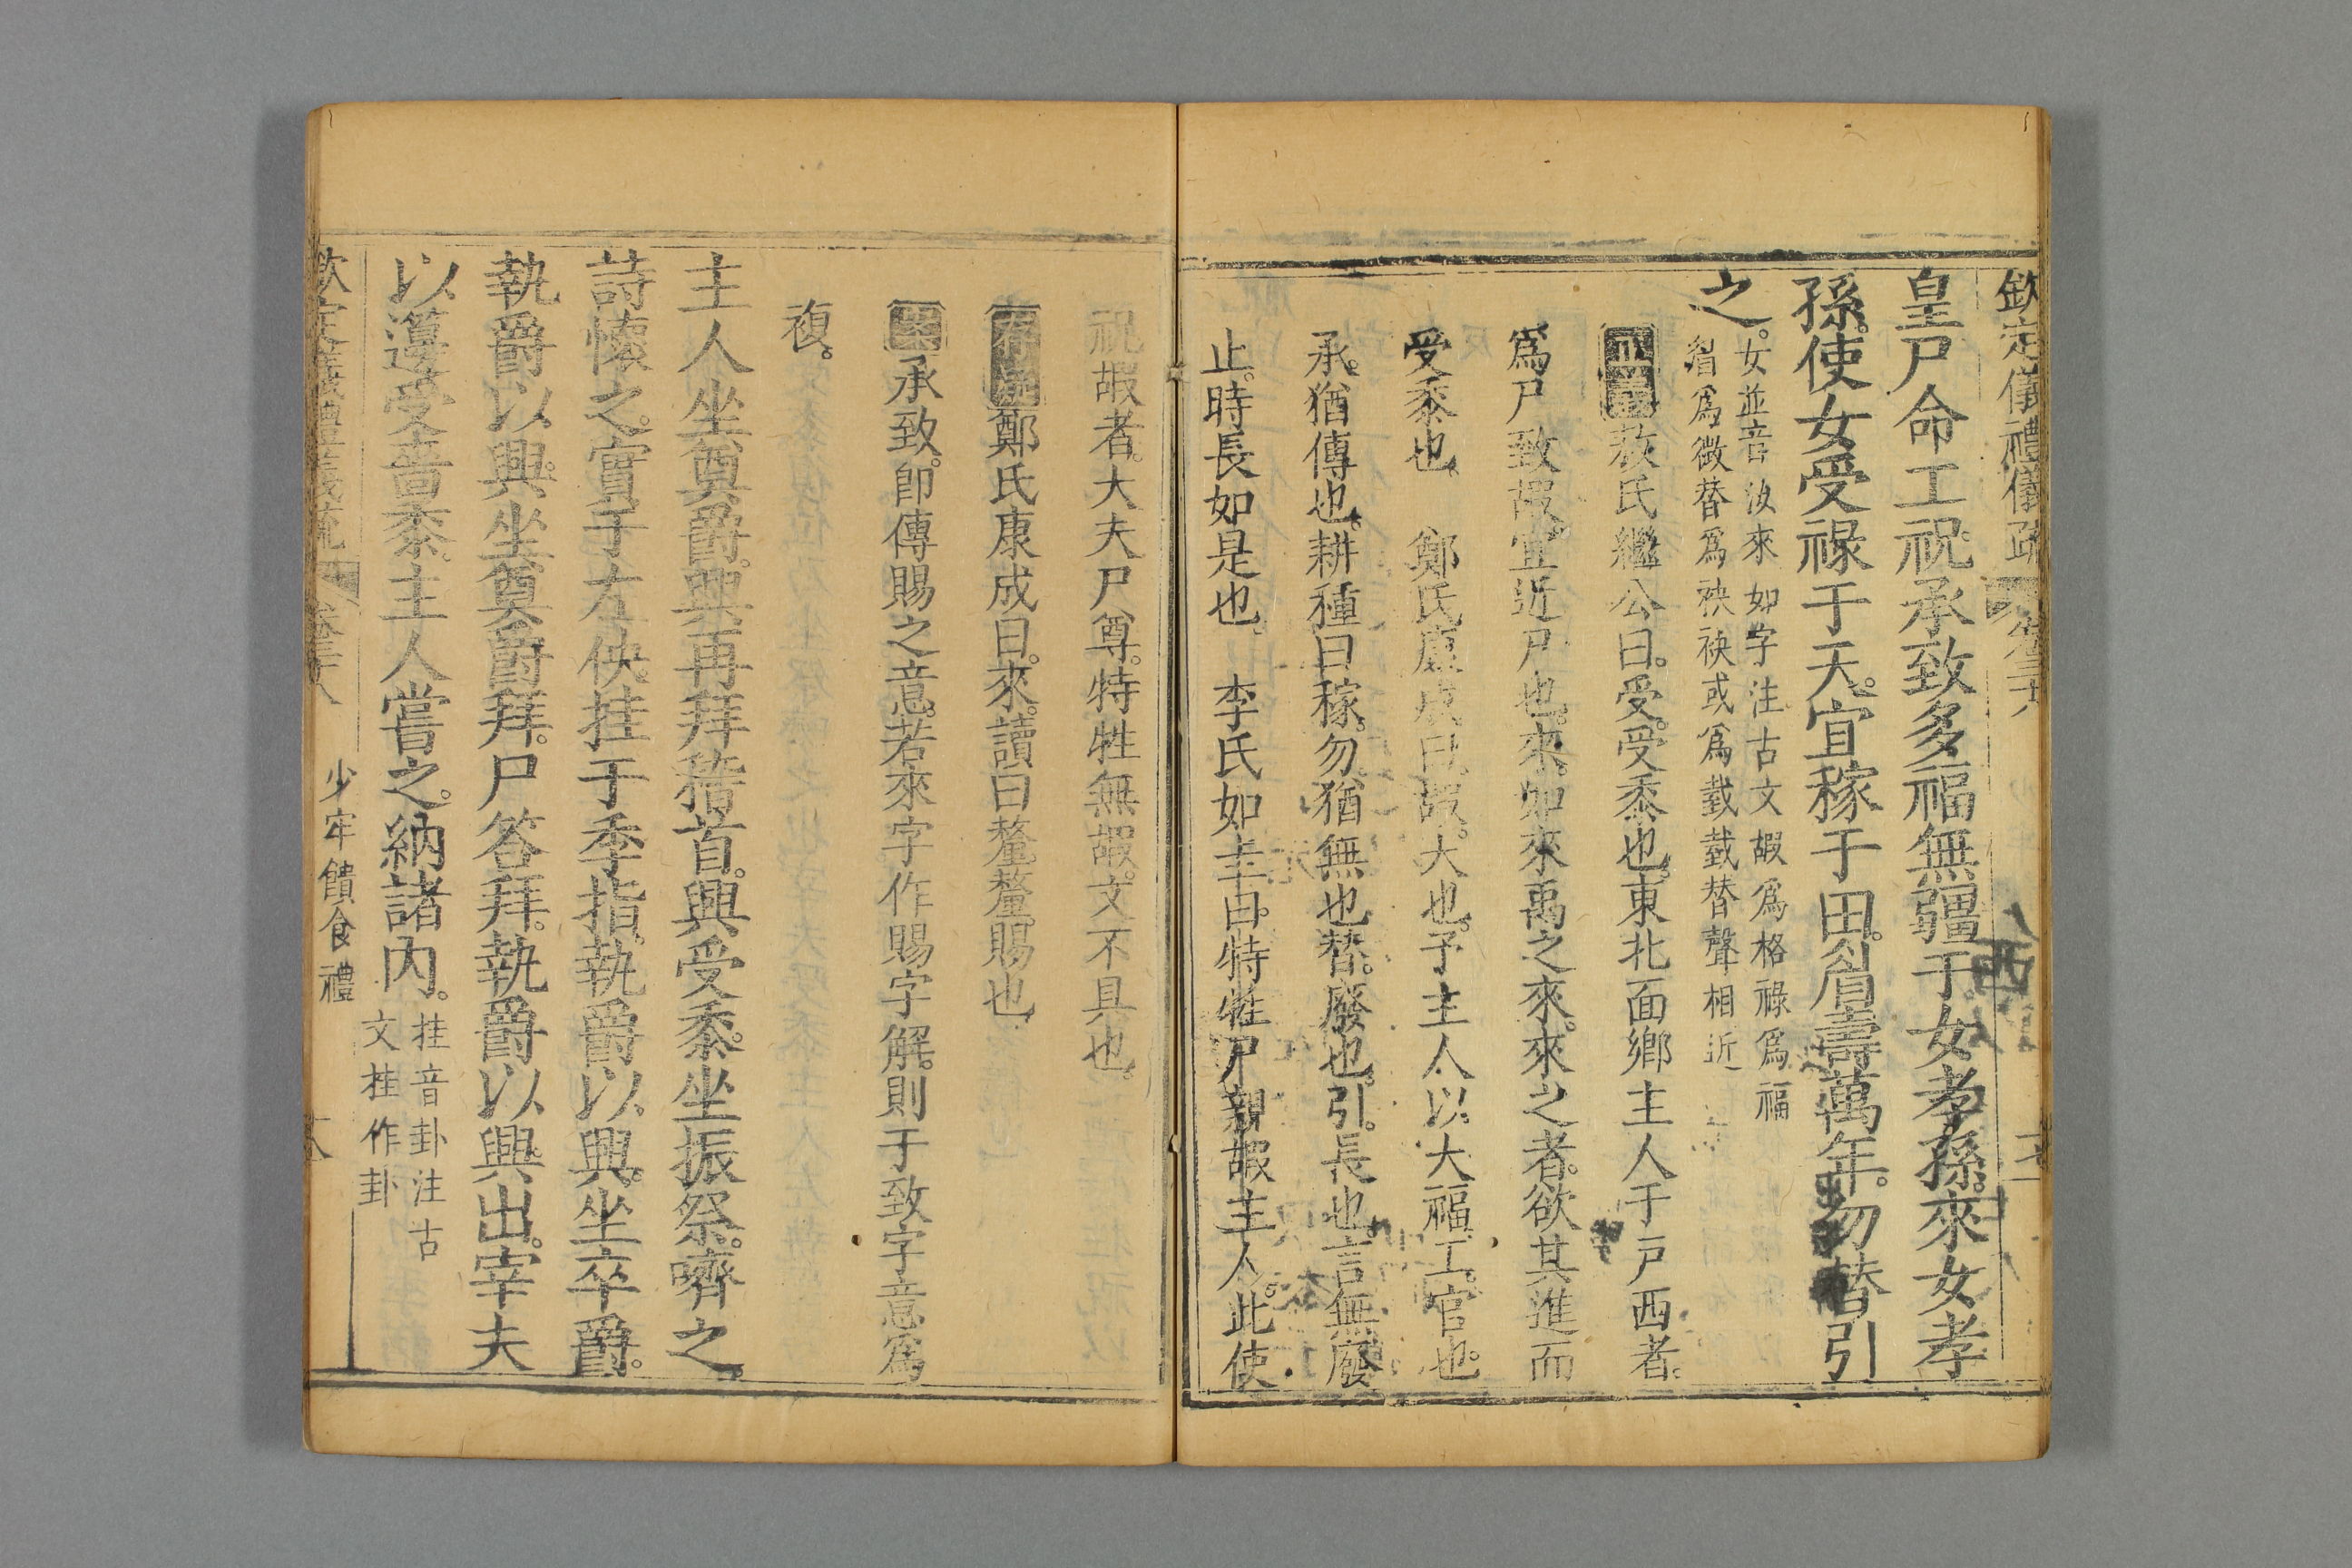 欽定儀禮儀疏
皇尸命工祝承致多福無疆于女孝孫來女孝
孫使女受祿于天宜稼于田眉壽萬年勿替引
之女並音汝來如字注古文嘏爲格祿爲福
眉爲微替爲袂袂或爲臷臷替聲相近
敖氏繼公曰受受黍也東北面鄉主人于戶西者
爲尸致嘏宜近尸也來如來禹之來來之者欲其進而
受黍也 鄭氏康成曰嘏大也予主人以大福工官也
承猶傳也耕種曰稼勿猶無也替廢也引長也言無廢
止時長如是也 李氏如圭曰特牲尸親嘏主人此使
祝嘏者大夫尸尊特牲無嘏文不具也
存疑鄭氏康成曰來讀曰釐釐賜也
案承致卽傳賜之意若來字作賜字解則于致字意爲
複
主人坐奠爵興再拜稽首興受黍坐振祭嚌之
詩懷之實于左袂挂于季指執爵以興坐卒爵
執爵以興坐奠爵拜尸答拜執爵以興出宰夫
以籩受嗇黍主人嘗之納諸內挂音卦注古
文挂作卦
欽定儀禮義疏 卷三十八 少牢饋食禮 十八